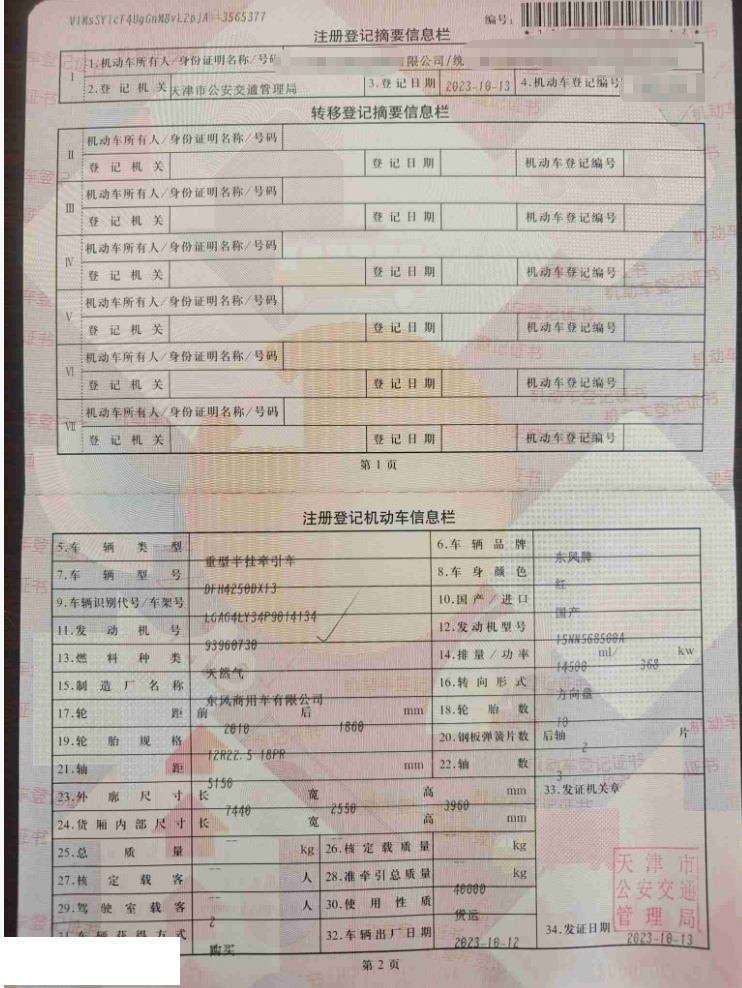 VlMsSYlcF4UgGnM8vL2pJA==3565377
编号:
注册登记摘要信息栏
I 1.机动车所有人/身份证明名称/号码 限公司/统
2.登记机关 天津市公安交通管理局 3.登记日期 2023-10-13 4.机动车登记编号
转移登记摘要信息栏
II 机动车所有人/身份证明名称/号码
登记机关 登记日期 机动车登记编号
III 机动车所有人/身份证明名称/号码
登记机关 登记日期 机动车登记编号
IV 机动车所有人/身份证明名称/号码
登记机关 登记日期 机动车登记编号
V 机动车所有人/身份证明名称/号码
登记机关 登记日期 机动车登记编号
VI 机动车所有人/身份证明名称/号码
登记机关 登记日期 机动车登记编号
VII 机动车所有人/身份证明名称/号码
登记机关 登记日期 机动车登记编号
第1页
注册登记机动车信息栏
5.车辆类型 重型半挂牵引车 6.车辆品牌 东风牌
7.车辆型号 DFH4250DX13 8.车身颜色 红
9.车辆识别代号/车架号 LGAG4LY34P9014134 10.国产/进口 国产
11.发动机号 93960730 12.发动机型号 15NNS68500A
13.燃料种类 天然气 14.排量/功率 14500 ml/ 368 kw
15.制造厂名称 东风商用车有限公司 16.转向形式 方向盘
17.轮距 前 2010 后 1860 mm 18.轮胎数 10
19.轮胎规格 12R22.5 18PR 20.钢板弹簧片数 后轴 2 片
21.轴距 5150 mm 22.轴数 3
23.外廓尺寸 长 7440 宽 2550 高 3960 mm 33.发证机关章
24.货厢内部尺寸 长 -- 宽 -- 高 -- mm
25.总质量 -- kg 26.核定载质量 -- kg
27.核定载客 -- 人 28.准牵引总质量 40000 kg
29.驾驶室载客 2 人 30.使用性质 货运
31.车辆获得方式 购买 32.车辆出厂日期 2023-10-12 34.发证日期 2023-10-13
天津市
公安交通
管理局
第2页